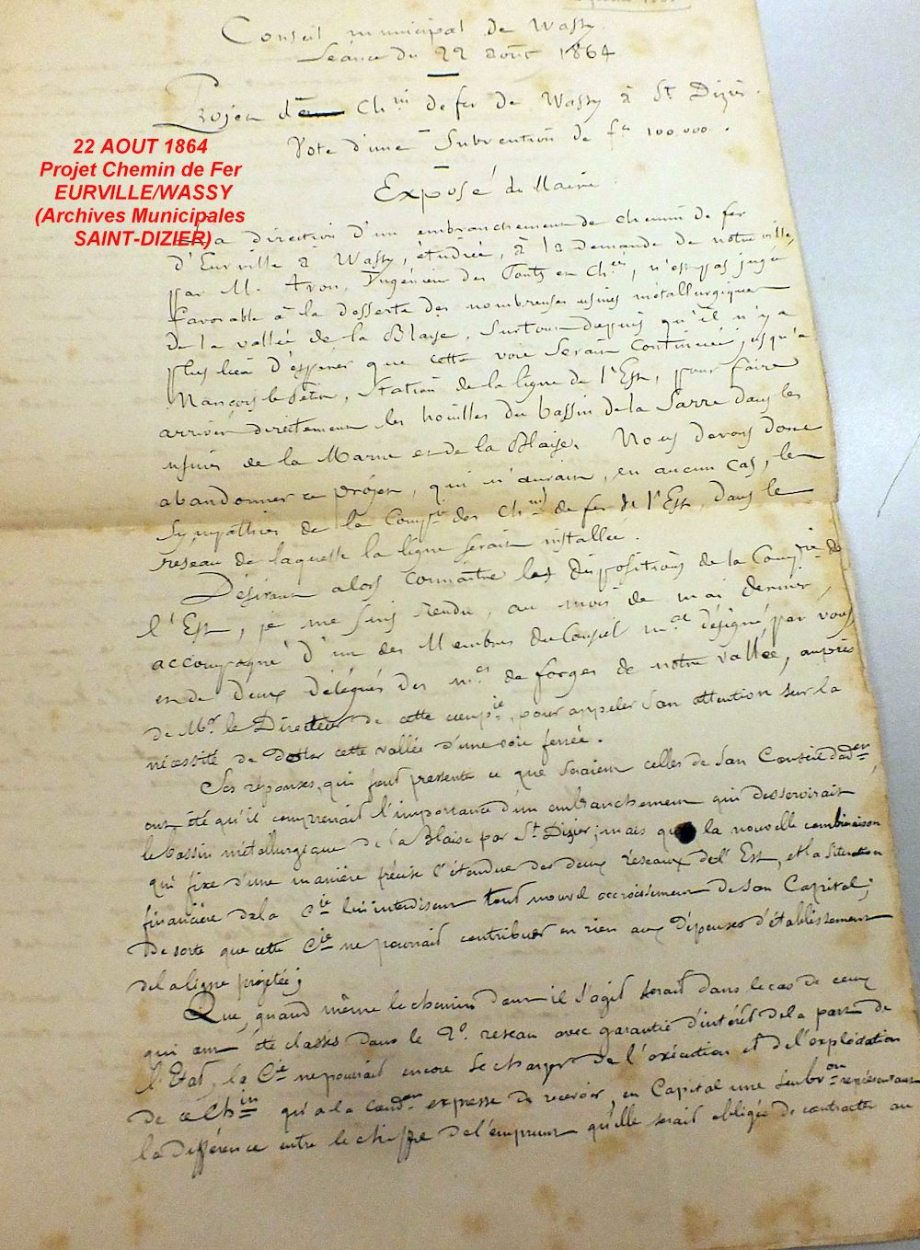 Conseil municipal de Wassy.
Séance du 22 août 1864
Projet d'un Ch.in de fer de Wassy à St Dizier.
Vote d'une Subvention de fr 100,000.
22 AOUT 1864
Projet Chemin de Fer
EURVILLE/WASSY
(Archives Municipales
SAINT-DIZIER)
Exposé du Maire
La direction d'un embranchement de chemin de fer
d'Eurville à Wassy, étudiée, à la demande de notre ville,
par M. Avon, Ingénieur des Ponts et Ch.ées, n'est pas jugée
favorable à la desserte des nombreuses usines métallurgiques
de la vallée de la Blaise, surtout depuis qu'il n'y a
plus lieu d'espérer que cette voie serait continuée jusqu'à
Nançois-le-Petit, Station de la ligne de l'Est, pour faire
arriver directement les houilles du bassin de la Sarre dans les
usines de la Marne et de la Blaise. Nous devons donc
abandonner ce projet, qui n'aurait, en aucun cas, les
sympathies de la Comp.ie des Ch.ins de fer de l'Est, dans le
réseau de laquelle la ligne serait installée.
Désirant alors connaître les dispositions de la Comp.ie de
l'Est, je me suis rendu, au mois de mai dernier,
accompagné d'un des Membres du Conseil m.al désigné par vous
et de deux délégués des m.es de forges de notre vallée, auprès
de Mr. le Directeur de cette comp.ie, pour appeler son attention sur la
nécessité de doter cette vallée d'une voie ferrée.
Ses réponses, qui font pressentir ce que seraient celles de son Conseil d'ad.on
ont été qu'il comprenait l'importance d'un embranchement qui desservirait
le bassin métallurgique de la Blaise par St. Dizier; mais que la nouvelle combinaison
qui fixe d'une manière précise l'étendue des deux réseaux de l'Est, et la situation
financière de la Cie lui interdisent tout nouvel accroissement de son Capital;
De sorte que cette Cie ne pourrait contribuer en rien aux dépenses d'établissement
de la ligne projetée;
Que, quand même le chemin dont il s'agit serait dans le cas de ceux
qui ont été classés dans le 2e. réseau avec garantie d'intérêt de la part de
l'Etat, la Cie ne pourrait encore se charger de l'exécution et de l'exploitation
de ce Ch.in qu'à la cond.on expresse de recevoir, en Capital une subv.on représentant
la différence entre le chiffre de l'emprunt qu'elle serait obligée de contracter au